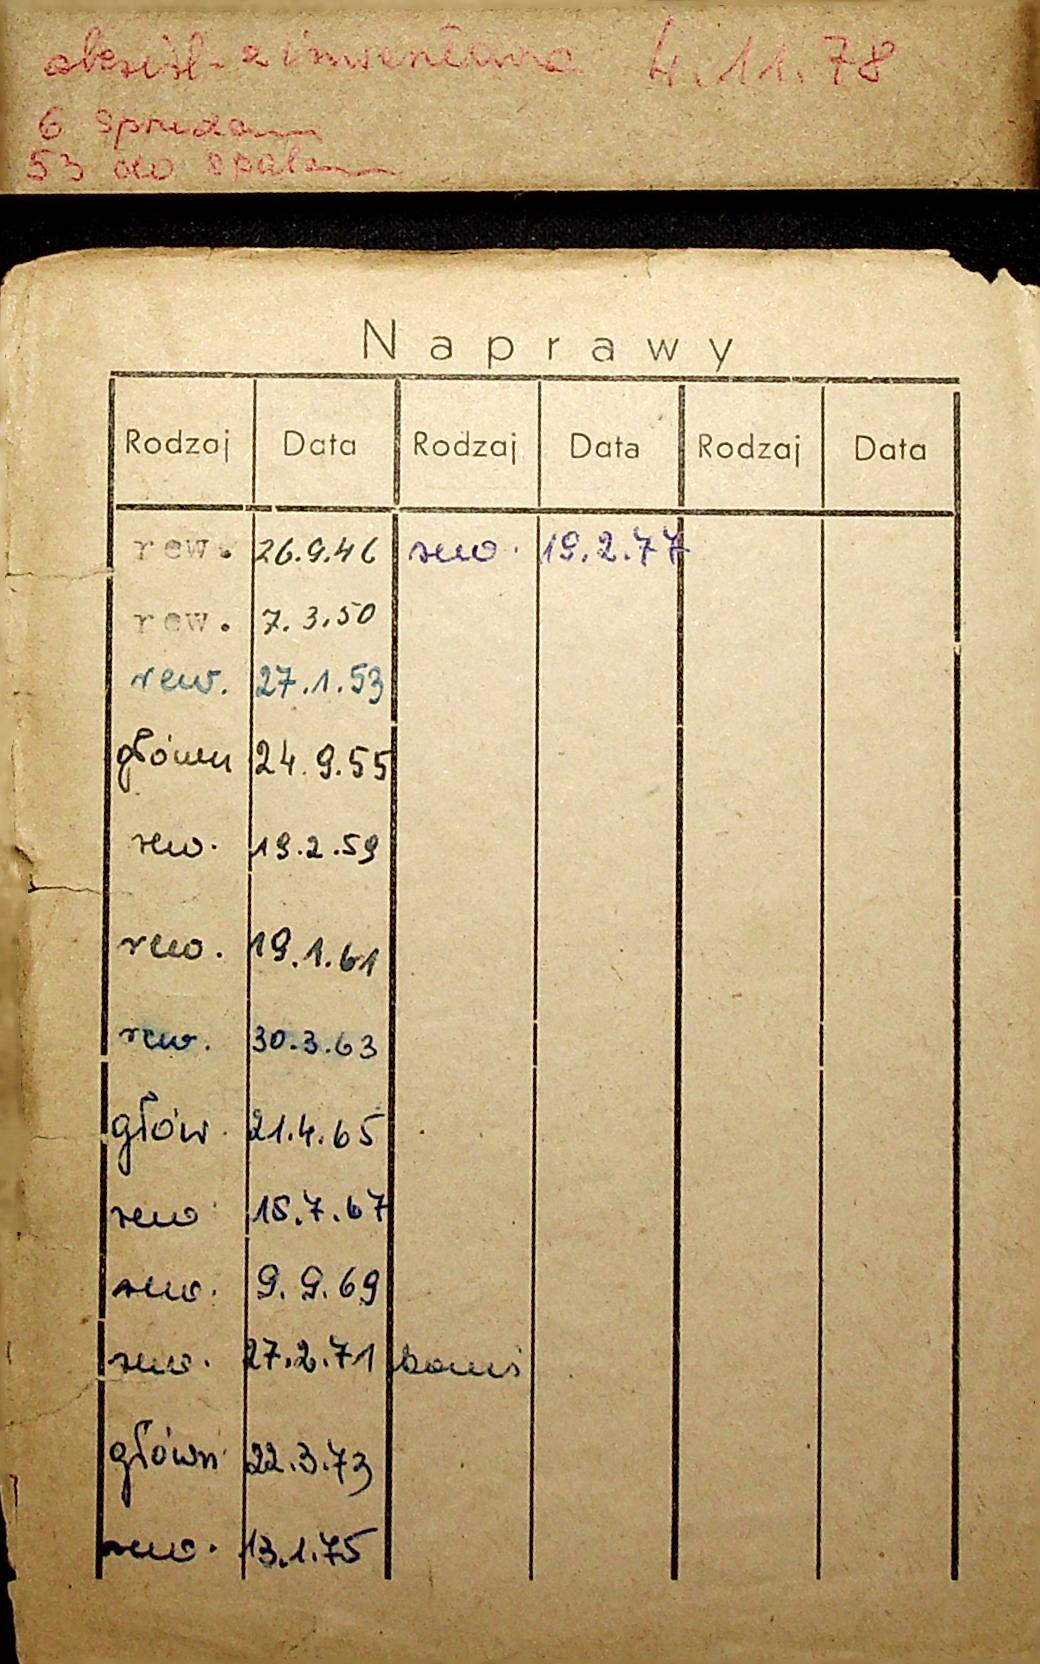 z inwentarza 4.11.78
6 sprzedano
53 do spalenia
Naprawy
Rodzaj Data Rodzaj Data Rodzaj Data
rew. 26.9.46 rew. 19.2.77
rew. 7.3.50
rew. 27.1.53
główn 24.9.55
rew. 19.2.59
rew. 19.1.61
rew. 30.3.63
głów. 21.4.65
rew. 15.7.67
rew. 9.9.69
rew. 27.2.71
główn 22.3.73
rew. 13.1.75